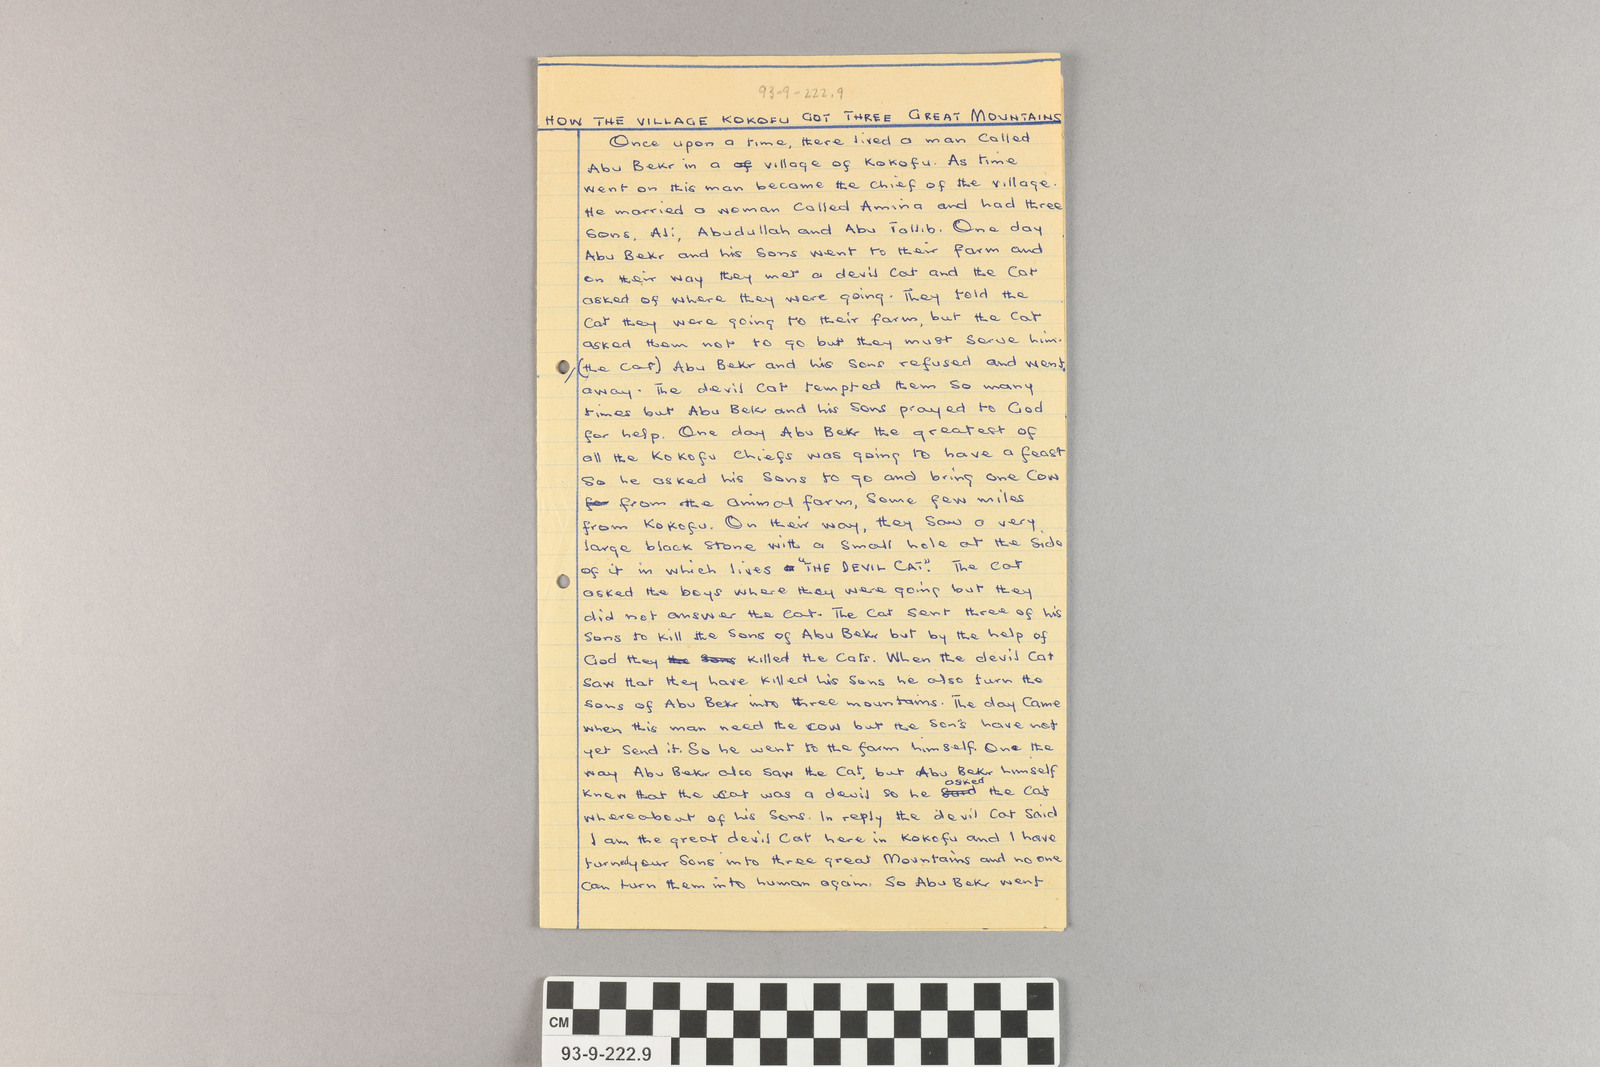 93-9-222.9
HOW THE VILLAGE KOKOFU GOT THREE GREAT MOUNTAINS
Once upon a time, there lived a man Called
Abu Bekr in a of village of Kokofu. As time
went on this man became the chief of the village.
He married a woman Called Amina and had three
Sons, Ali, Abudullah and Abu Tallib. One day
Abu Bekr and his Sons went to their farm and
on their way they met a devil Cat and the Cat
asked of where they were going. They told the
Cat they were going to their farm, but the Cat
asked them not to go but they must Serve him.
(the Cat) Abu Bekr and his Sons refused and went
away. The devil Cat tempted them So many
times but Abu Bekr and his Sons prayed to God
for help. One day Abu Bekr the greatest of
all the Kokofu Chiefs was going to have a feast
So he asked his Sons to go and bring one Cow
for from the animal farm, Some few miles
from Kokofu. On their way, they Saw a very
large black Stone with a Small hole at the Side
of it in which lives a "THE DEVIL CAT". The Cat
asked the boys where they were going but they
did not answer the Cat. The Cat Sent three of his
Sons to kill the Sons of Abu Bekr but by the help of
God they the Sons killed the Cats. When the devil Cat
Saw that they have killed his Sons he also turn the
Sons of Abu Bekr into three mountains. The day Came
when this man need the cow but the Son's have not
yet Send it. So he went to the farm himself. One the
way Abu Bekr also Saw the Cat, but Abu Bekr himself
asked
knew that the Cat was a devil So he Said the Cat
whereabout of his Sons. In reply the devil Cat Said
I am the great devil Cat here in Kokofu and I have
turned your Sons into three great Mountains and no one
Can turn them into human again. So Abu Bekr went
CM
93-9-222.9